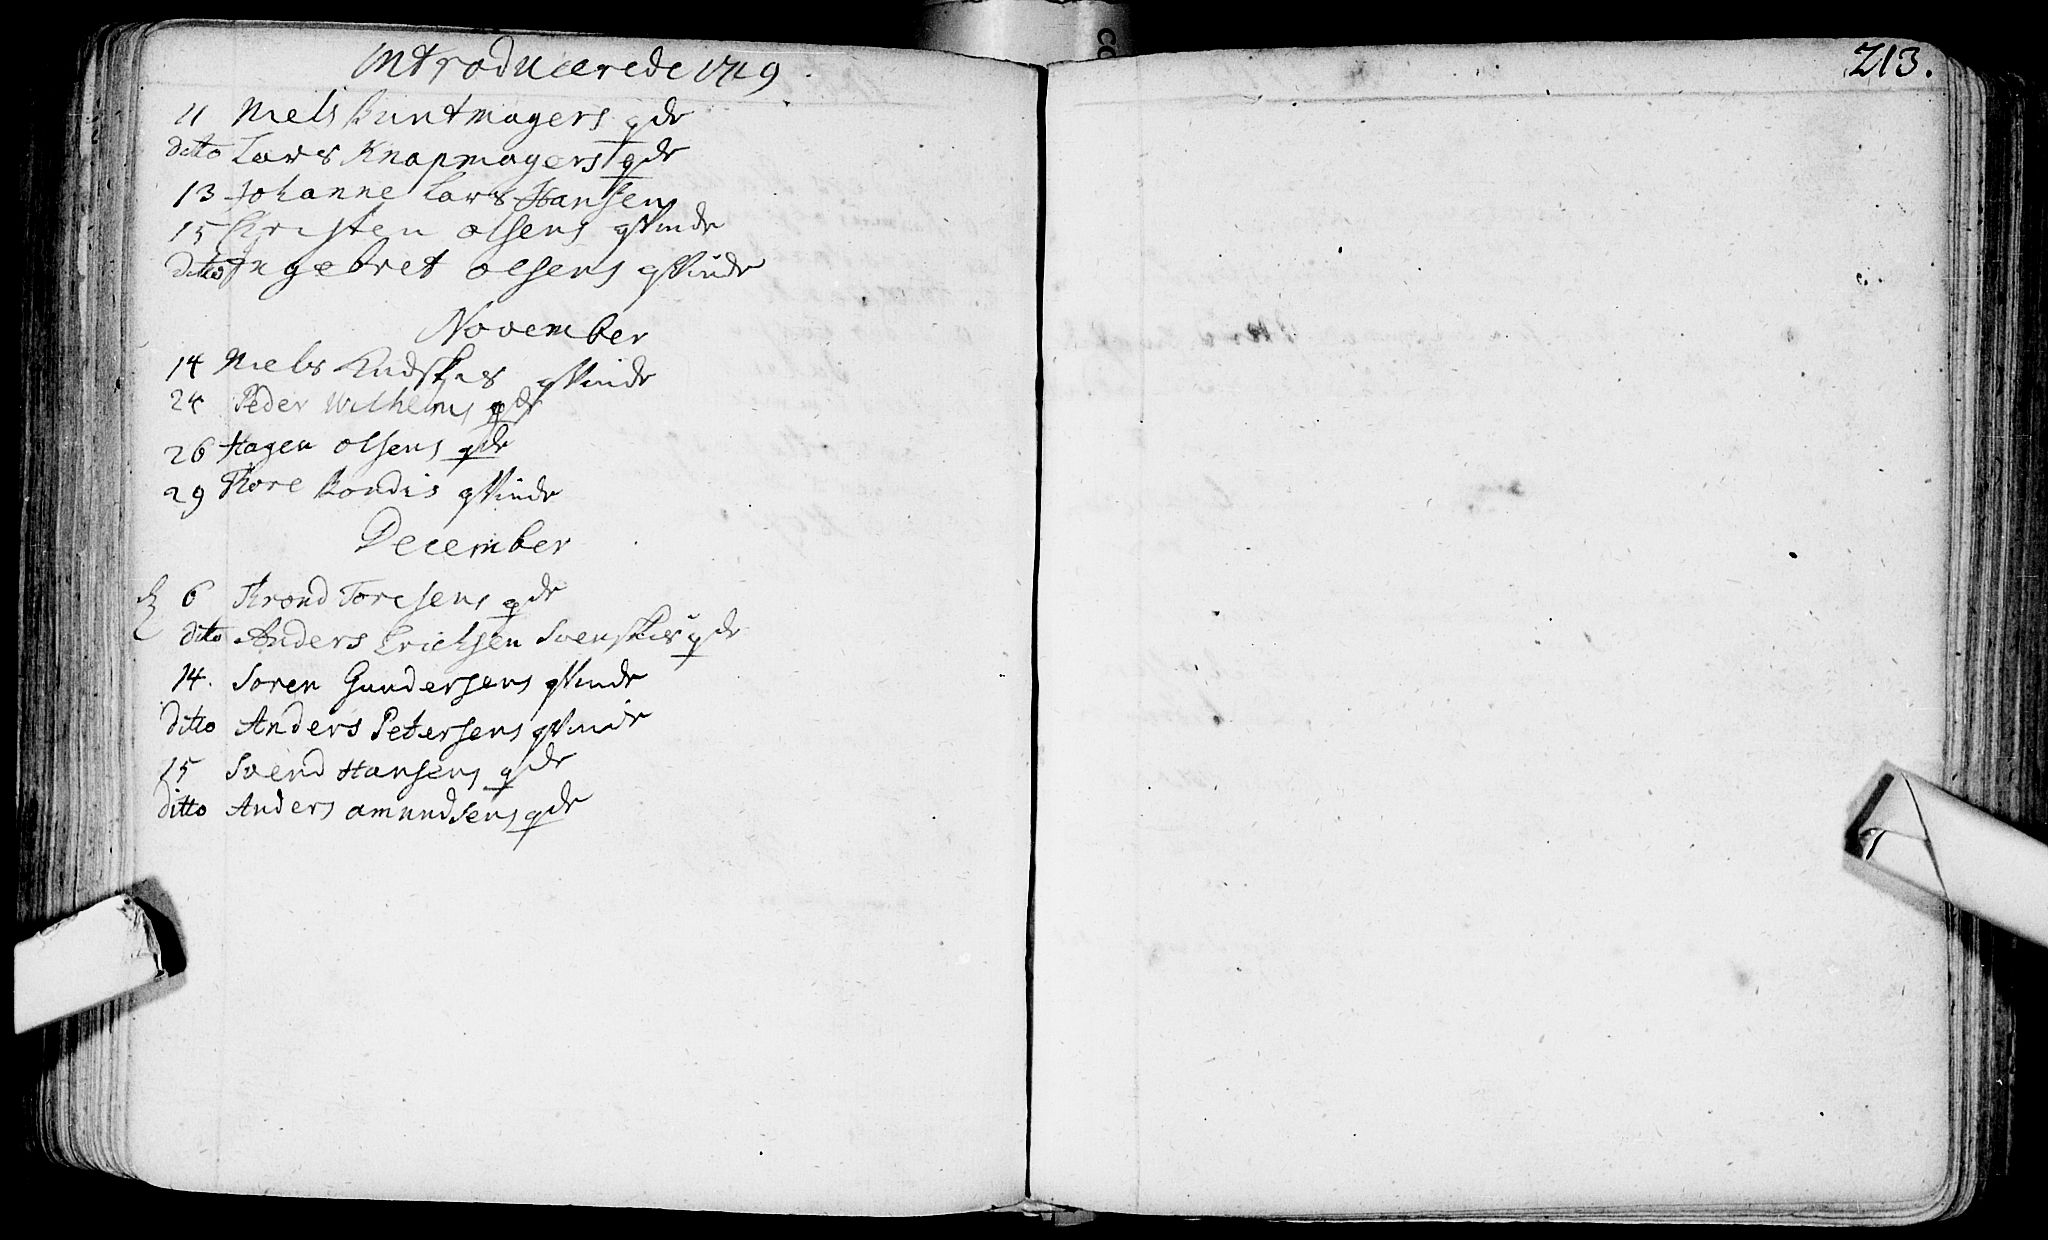 Introducerede 1719
11 Niels Buntmagers qde
ditto Lars Knapmagers qde
13 Johanne Lars Hansen
15 Christen Olsens qvinde
ditto Ingebret Olsens qvinde
November
14 Niels qvinde
24 Peder Wilhelms qde
26 Hagen Olsens qde
29 Thore Bondis qvinde
December
6 Thrond Toresens qde
ditto Anders Erichsen Svenskes qde
14. Soren Gundersens qvinde
ditto Anders Petersens qvinde
15 Svend Hansens qde
ditto Anders amundsens qde
213.